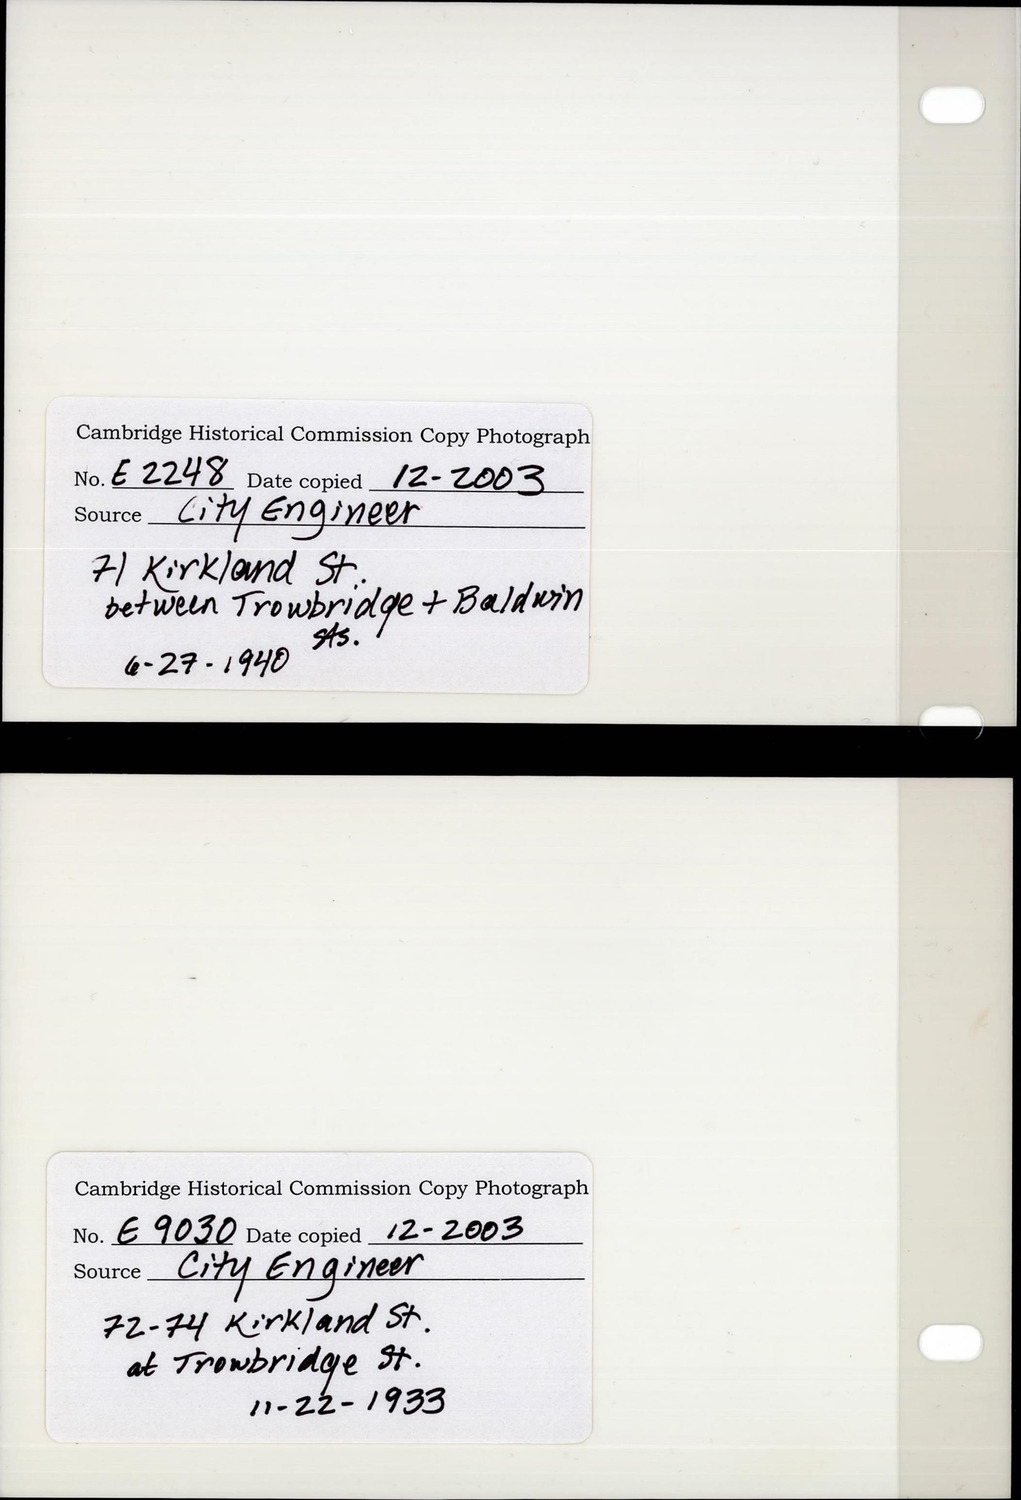 Cambridge Historical Commission Copy Photograph
No. E 2248 Date copied 12-2003
Source City Engineer
71 Kirkland St.
between Trowbridge + Baldwin
Sts.
6-27-1940
Cambridge Historical Commission Copy Photograph
No. E 9030 Date copied 12-2003
Source City Engineer
72-74 Kirkland St.
at Trowbridge St.
11-22-1933